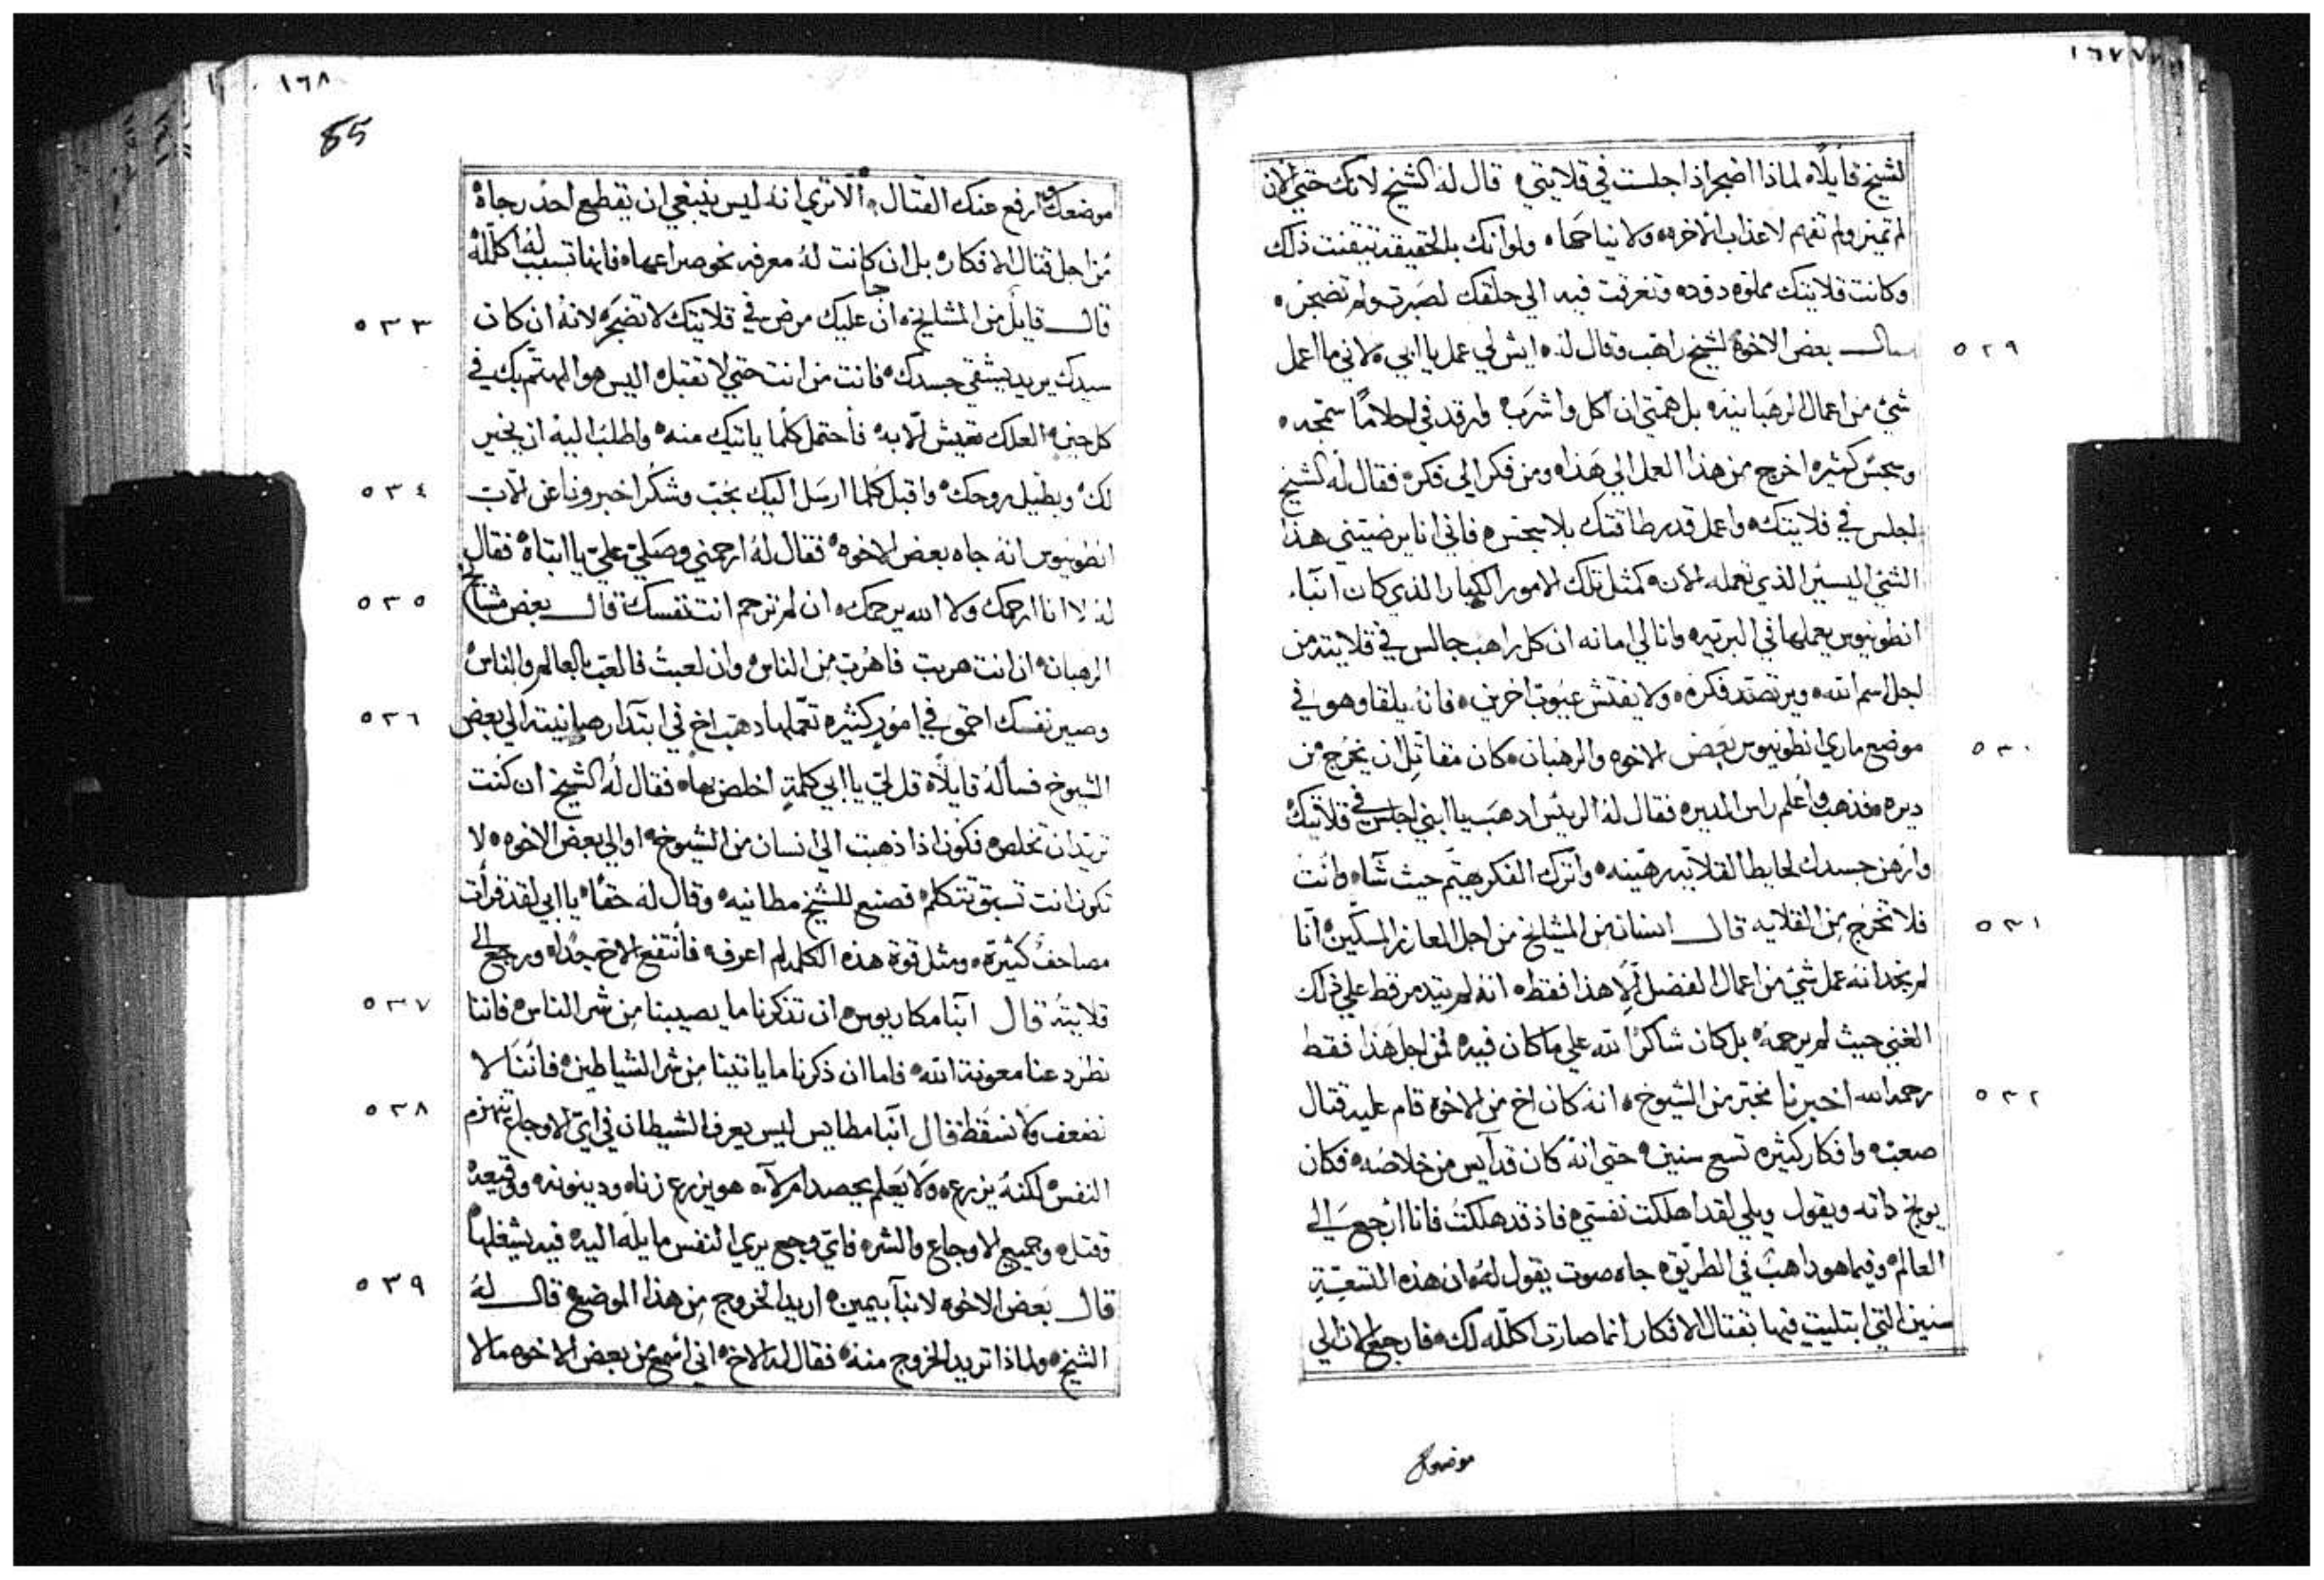 ١٦٧
لشيخ قايلاه لماذا اضجر اذا جلست في قلايتي ه قال له الشيخ لانك حتي الان
لم تميز ولم تفهم لا عذاب الاخره ه ولا نياحها ه ولو انك بالحقيقه تيقنت ذلك
وكانت قلايتك مملوه دوده وتغرقت فيه الي حلقك لصبرت ولم تضجر ه
٥٢٩ سال بعض الاخوه لشيخ راهب وقال له ه ايش لي عمل يا ابي ه لاني ما اعمل
شي من اعمال الرهبانيه ه بل همتي ان اكل واشرب ه وارقد في احلاما سمجه ه
وبجس كثيره اخرج من هذا العمل الي هذا ه ومن فكر الي فكر ه فقال له الشيخ
اجلس في قلايتك ه واعمل قدر طاقتك بلا سجس ه فاني انا يرضيني هذا
الشي اليسير الذي تعمله الان ه كمثل تلك الامور الكبار الذي كان انباء
انطونيوس يعملها في البريه ه وانا لي امانه ان كل راهب جالس في قلايته من
اجل اسم الله ه ويرتصد فكره ه ولا يفتش عيوب اخرين ه فانه يلقا وهو في
٥٣٠ موضع ماري انطونيوس بعض الاخوه والرهبان ه كان مقاتل ان يخرج من
ديره ه فذهب واعلم راس الديره فقال له الريس ادهب يا ابني اجلس في قلايتك
وارهن جسدك لحايط القلايه رهينه ه واترك الفكر يهتم حيث شآء وانت
٥٣١ فلا تخرج من القلايه قال انسان من المشايخ من اجل العازر المسكين ه اننا
لم نجد انه عمل شي من اعمال الفضل الا هذا فقط ه انه لم يتدمر قط علي ذلك
الغني حيث لم يرحمه ه بل كان شاكرا لله علي ما كان فيه ه فمن اجل هذا فقط
٥٣٢ رحمه الله اخبرنا مختبر من الشيوخ ه انه كان اخ من الاخوه قام عليه قتال
صعب ه وافكار كثيره تسع سنين ه حتي انه كان قد آيس من خلاصه ه فكان
يوبخ داته ويقول ويلي لقد اهلكت نفسي ه فاذ قد هلكت فانا ارجع الي
العالم ه وفيما هو داهب في الطريق ه جاه صوت يقول له ه ان هذه التسعة
سنين التي ابتليت فيها بقتال الافكار انما صارت اكلله لك ه فارجع الان الي
موضعك
١٦٨
85
موضعك وانا ارفع عنك القتال ه الا تري انه ليس ينبغي ان يقطع احد رجاه
من اجل قتال الافكار ه بل ان كانت له معرفه نحو صراعها ه فانها تسبب له اكلله
٥٣٣ قال قايل من المشايخ ه ان جا عليك مرض في قلايتك لا تضجر ه لانه ان كان
سيدك يريد يشقي جسدك ه فانت من انت حتي لا تقبل ه اليس هو المهتم بك في
كل حين ه العلك تعيش الا به ه فاحتمل كلما ياتيك منه ه واطلب اليه ان يخير
٥٣٤ لك ه ويطيل روحك ه واقبل كلما ارسل اليك بحب وشكر اخبرونا عن الاب
انطونيوس انه جاه بعض الاخوه ه فقال له ارحمني وصلي علي يا ابتاه ه فقال
٥٣٥ له لا انا ارحمك ولا الله يرحمك ه ان لم ترحم انت نفسك قال بعض مشايخ
الرهبان ه ان انت هربت فاهرب من الناس ه وان لعبت فالعب بالعالم والناس ه
٥٣٦ وصير نفسك احمق في امور كثيره تعملها دهب اخ في ابتدآ رهبانيته الي بعض
الشيوخ فساله قايلاه قل لي يا ابي كلمة اخلص بها ه فقال له الشيخ ان كنت
تريد ان تخلص ه فكون اذا ذهبت الي انسان من الشيوخ ه او الي بعض الاخوه ه لا
تكون انت تسبق تتكلم ه فصنع للشيخ مطانيه ه وقال له حقا ه يا ابي لقد قرات
مصاحف كثيرة ه ومثل قوة هذه الكلمه لم اعرف ه فانتفع الاخ جدا ه ورجع الي
٥٣٧ قلايته قال انبا مكاريوس ه ان تذكرنا ما يصيبنا من شر الناس ه فاننا
نطرد عنا معونة الله ه فاما ان ذكرنا ما ياتينا من شر الشياطين ه فاننا لا
٥٣٨ نضعف ولا نسقط قال انبا مطايس ليس يعرف الشيطان في اي الاوجاع تنهزم
النفس لكنه يزرع ه ولا يعلم يحصد ام لآ ه هو يزرع زنا ه ودينونه ه ووقيعه ه
وقتل ه وجميع الاوجاع والشر ه فاي وجع يري النفس مايله اليه ه فيه يشغلها
٥٣٩ قال بعض الاخوه لانبآ بيمين ه اريد الخروج من هذا الموضع ه قال له
الشيخ ه ولماذا تريد الخروج منه ه فقال له الاخ ه اني اسمع عن بعض الاخوه ما لا